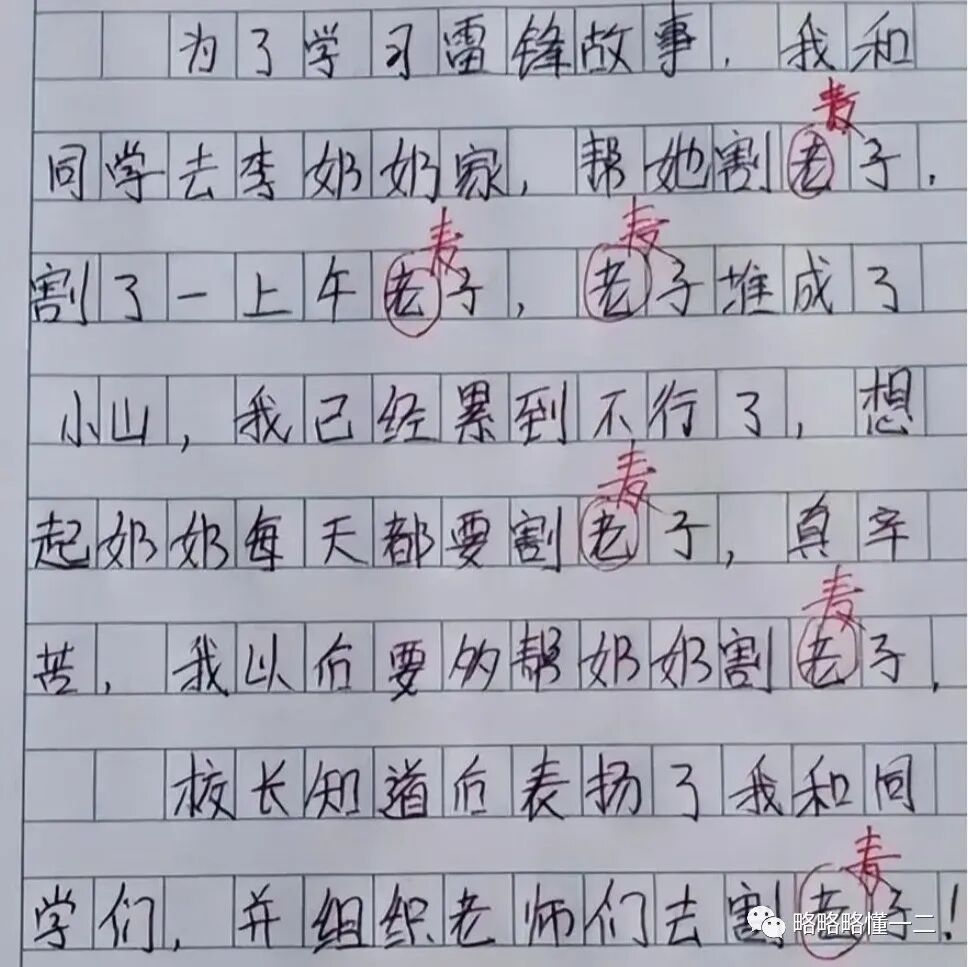 为了学习雷锋故事，我和
麦
同学去李奶奶家，帮她割老子，
麦 麦
割了一上午老子，老子堆成了
小山，我已经累到不行了，想
麦
起奶奶每天都要割老子，真辛
麦
苦，我以后要多帮奶奶割老子，
校长知道后表扬了我和同
麦
学们，并组织老师们去割老子！
略略略懂一二